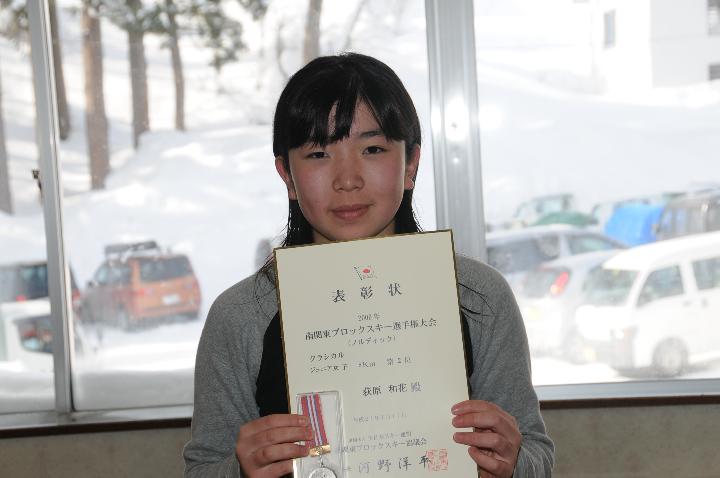 表彰状
2009年
南関東ブロックスキー選手権大会
(ノルディック)
クラシカル
ジュニア女子 5Km 第2位
荻原 和花 殿
南関東ブロックスキー協議会
河野洋平